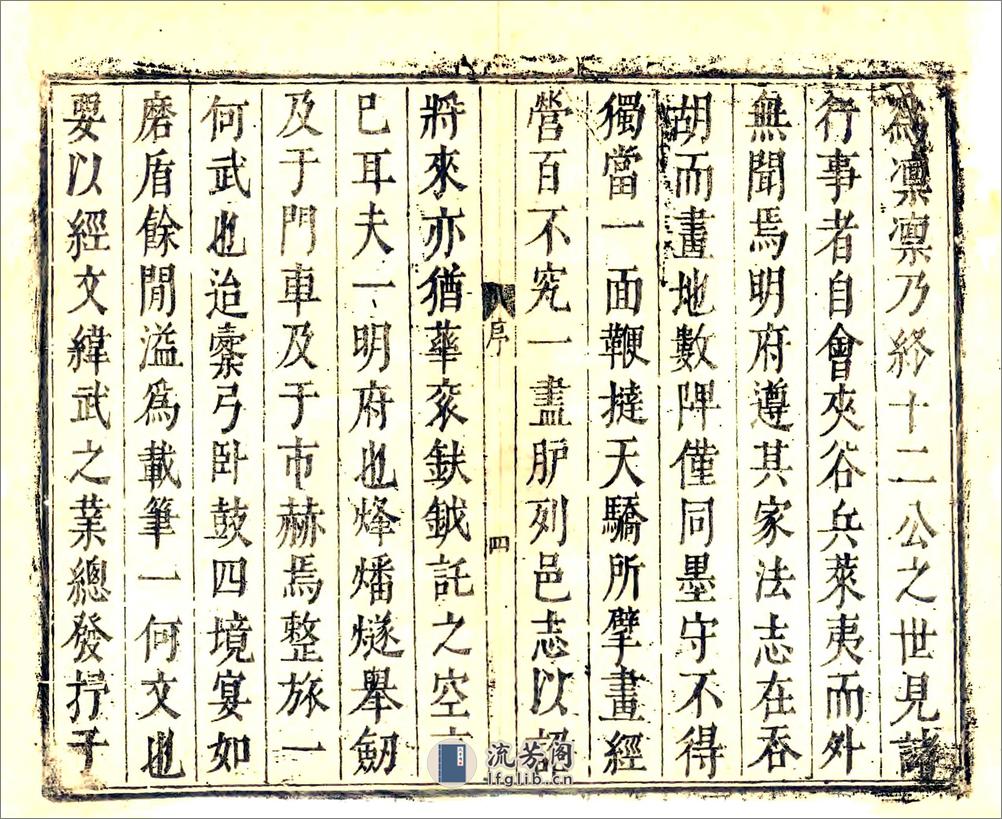 為凛凛乃終十二公之世見諸
行事者自會夾谷兵萊夷而外
無聞焉明府遵其家法志在吞
胡而畫地數陴僅同墨守不得
獨當一面鞭撻天驕所擘畫經
營百不究一盡胪列邑志以詔
序
四
將來亦猶華衮鈇鉞託之空
已耳夫一明府也烽燔燧舉劒
及于門車及于市赫焉整旅一
何武也迨櫜弓卧鼓四境宴如
磨盾餘閒溢爲載筆一何文也
要以經文緯武之業總發抒于
流芳阁
lfglib.cn